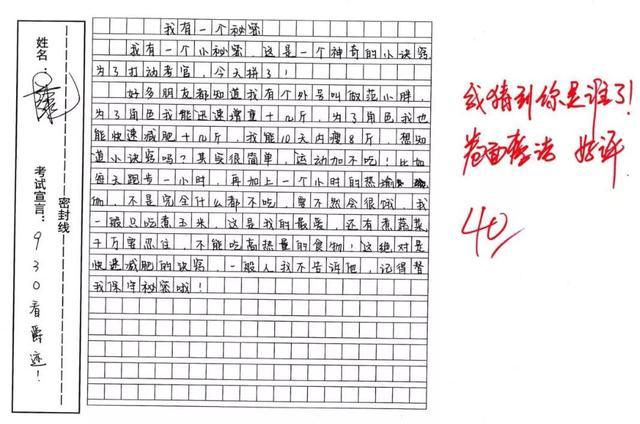 我有一个秘密
我有一个小秘密,这是一个神奇的小诀窍
为了打动考官,今天拼了!
好多朋友都知道我有个外号叫做范小胖,
为了角色我能迅速增重十几斤,为了角色我也
能快速减肥十几斤,我能10天内瘦8斤,想知
道小诀窍吗?其实很简单,运动加不吃!比如
每天跑步一小时,再加上一个小时的热瑜
伽,不是完全什么都不吃,要不然会很饿,我
一般只吃煮玉米,这是我的最爱,还有煮蔬菜,
千万要忍住,不能吃高热量的食物!这绝对是
快速减肥的诀窍,一般人我不告诉他,记得替
我保守秘密哦!
姓名:
考试宣言:930看爵迹!
密封线
我猜到你是谁了!
卷面整洁 好评
40